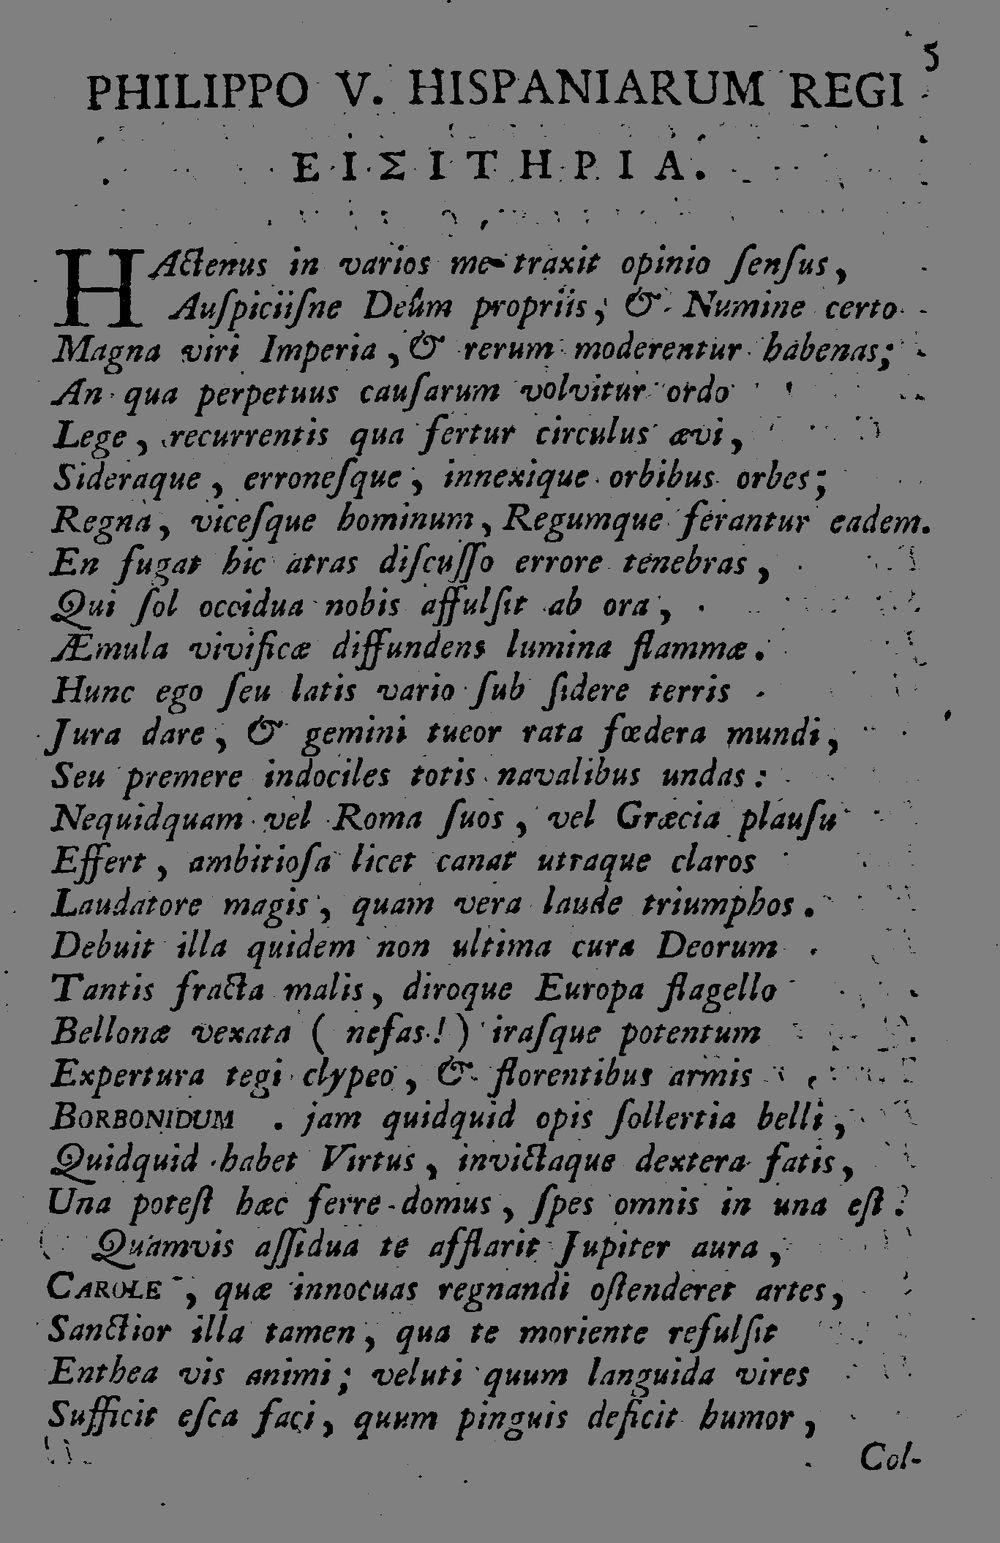 5
PHILIPPO V. HISPANIARUM REGI
ΕΙΣΙΤΗΡΙΑ.
HActenus in varios me traxit opinio ſenſus,
Auſpiciiſne Deûm propriis, & Numine certo
Magna viri Imperia, & rerum moderentur habenas;
An qua perpetuus cauſarum volvitur ordo
Lege, recurrentis qua fertur circulus ævi,
Sideraque, erroneſque, innexique orbibus orbes;
Regna, viceſque hominum, Regumque ferantur eadem.
En fugat hic atras diſcuſſo errore tenebras,
Qui ſol occidua nobis affulſit ab ora,
Æmula vivificæ diffundens lumina flammæ.
Hunc ego ſeu latis vario ſub ſidere terris
Jura dare, & gemini tueor rata fœdera mundi,
Seu premere indociles totis navalibus undas:
Nequidquam vel Roma ſuos, vel Græcia plauſu
Effert, ambitioſa licet canat utraque claros
Laudatore magis, quam vera laude triumphos.
Debuit illa quidem non ultima cura Deorum
Tantis fracta malis, diroque Europa flagello
Bellonæ vexata ( nefas! ) iraſque potentum
Expertura tegi clypeo, & florentibus armis
BORBONIDUM . jam quidquid opis ſollertia belli,
Quidquid habet Virtus, invictaque dextera fatis,
Una poteſt hæc ferre domus, ſpes omnis in una eſt.
Quamvis aſſidua te afflarit Jupiter aura,
CAROLE, quæ innocuas regnandi oſtenderet artes,
Sanctior illa tamen, qua te moriente refulſit
Enthea vis animi; veluti quum languida vires
Sufficit eſca faci, quum pinguis deficit humor,
Col-